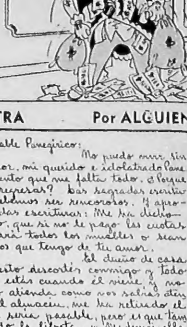 TRA Por ALGUIEN
able Panegírico:
No puedo vivir sin
or, mi querido e idolatrado Pane
ento que me falta todo. ¿Porque
regresar? Las sagradas escritu
rencorosos. Y apro-
das escrituras: Me ha dicho
o, que si no le pago las cuotas
ará todos los muebles o sean
os que tengo de tu amor.
El dueño de casa
esto descortés conmigo y todos
estás cuando él viene, y no
atienda como nos salías des
El almacén, me ha retirado el
sería posible, pero es que tam